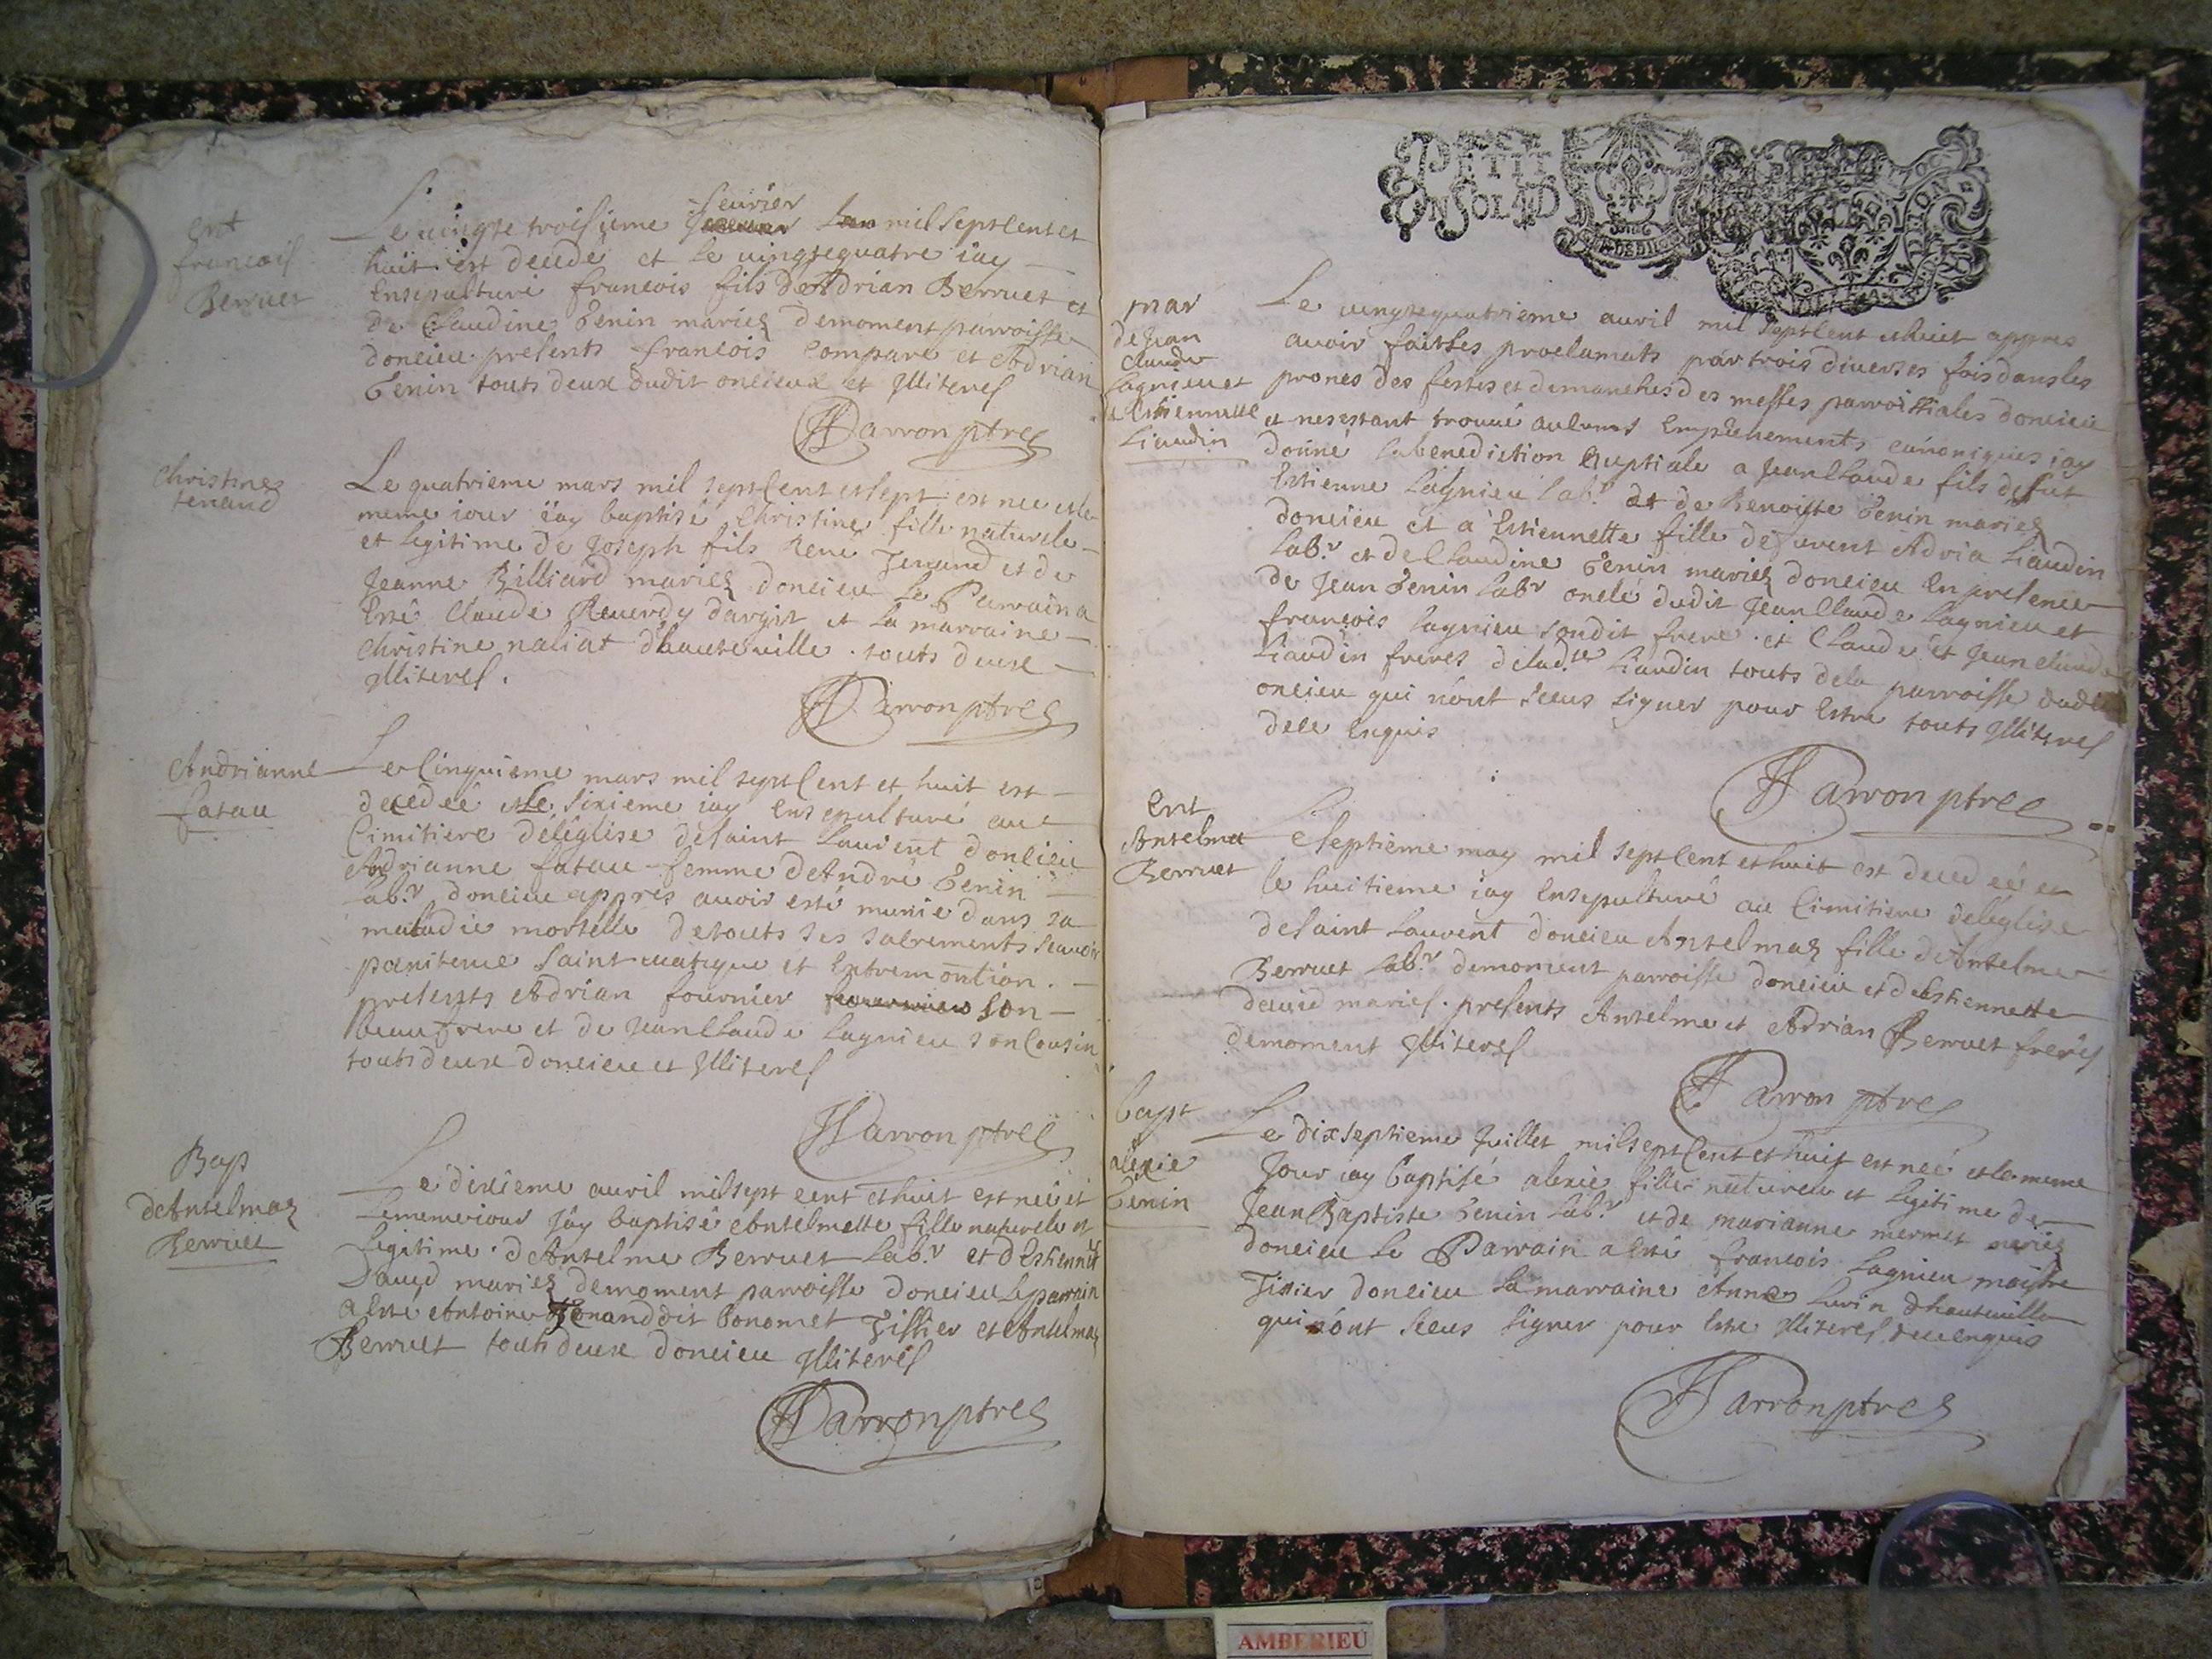 Ent
francois
Berruet
fevrier
Le vingte troisieme mil sept Cent et
huit est decede et le vingtequatre iay
Ensepulture francois fils De Adrian Berruet et
de Claudine Genin mariez demoment parroisse
doncieu presents francois Compare et Adrian
Genin touts deux dudit oncieux et Illiteres
Darron ptre
Christine
tenand
Le quatrieme mars mil sept Cent et sept est nee et le
meme iour iay baptisé Christine fille naturele
et legitime de Joseph fils René Tenand et de
Jeanne Billiard mariez doncieu Le Parrain a
Esté Claude Reverdy dargit et la marraine
Christine naliat dhauteville touts deux
Illiteres.
Darron ptre
Andrianne
fatau
Le Cinquieme mars mil sept Cent et huit est
decedeé et le sixieme iay Ensepulturé au
Cimitiere deléglise desaint Laurent doncieu
Adrianne fatau femme deAndré Genin
Lab.r doncieu appres avoir esté munie dans sa
maladie mortelle detouts ses sacrements scavoir
penitence saint viatique et Extremontion.
presents Adrian fournier son
beaufrere et de Jean Claude Lagnieu son Cousin
touts deux doncieu et Illiteres
Darron ptre
Bap
deAntelmaz
Berruet
Le dixieme avril milsept cent et huit est neé et
Lememeiour Jay baptisé Antelmette fille naturele et
legitime deAntelme Berruet Lab.r et dEstiennette
David mariez demoment parroisse doncieu Leparrain
a Esté Antoine Tenand dit bonomet Tissier et Antelmaz
Berruet touts deux doncieu Illiteres
Darron ptre
PETIT
EN SOL 4D
mar
de Jean
Claude
Lagnieu et
dEstiennette
Liaudin
Le vingtequatrieme avril mil sept Cent et huit appres
avoir fait les proclamats par trois diverses fois dans les
prones des festes et dimanches des messes parroissiales doncieu
et nesestant trouvé aulcuns Empechements canoniques iay
donné la benediction Nuptiale a Jean Claude fils defut
Estienne Lagnieu Lab.r et de Benoiste Genin mariez
doncieu et a Estiennette fille de Adria Liaudin
Lab.r et de Claudine Genin mariez doncieu En presence
de Jean Genin Lab.r oncle dudit Jean Claude Lagnieu et
francois Lagnieu sondit frere et Claude et Jean Claude
Liaudin freres delad.te Liaudin touts dela parroisse dudit
oncieu qui nónt sceus signer pour Estre touts Illiteres
dece Enquis
Darron ptre
Ent
Antelma
Berruet
Le septieme may mil sept Cent et huit est decedeé et
le huitieme iay Ensepulturé au Cimitiere deléglise
desaint Laurent doncieu Antelmaz fille deAntelme
Berruet Lab.r demoment parroisse doncieu et deEstiennette
david mariés. presents Antelme et Adrian Berruet freres
demoment Illiteres
Darron ptre
bapt
alexie
Genin
Le dixseptieme Juillet milsept Cent et huit est neé et le meme
Jour iay baptisé alexie fille naturele et legitime de
Jean Baptiste Genin Lab.r et de marianne mermet mariez
doncieu Le Parrain a Esté francois Lagnieu maistre
Tixier doncieu La marraine Anne Lurin dhauteville
qui nónt sceus signer pour Estre Illiteres dece enquis
Darron ptre
AMBERIEU